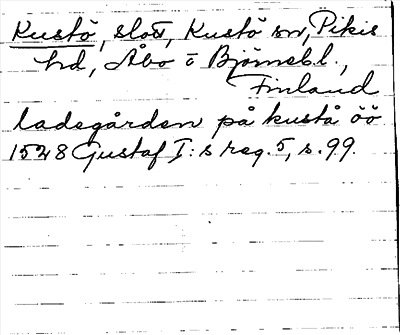 Kustö, slott, Kustö sn, Pikis
hd, Åbo o Björneb.l.,
Finland
ladegården på kustå öö
1528 Gustaf I:s reg. 5, s. 99.